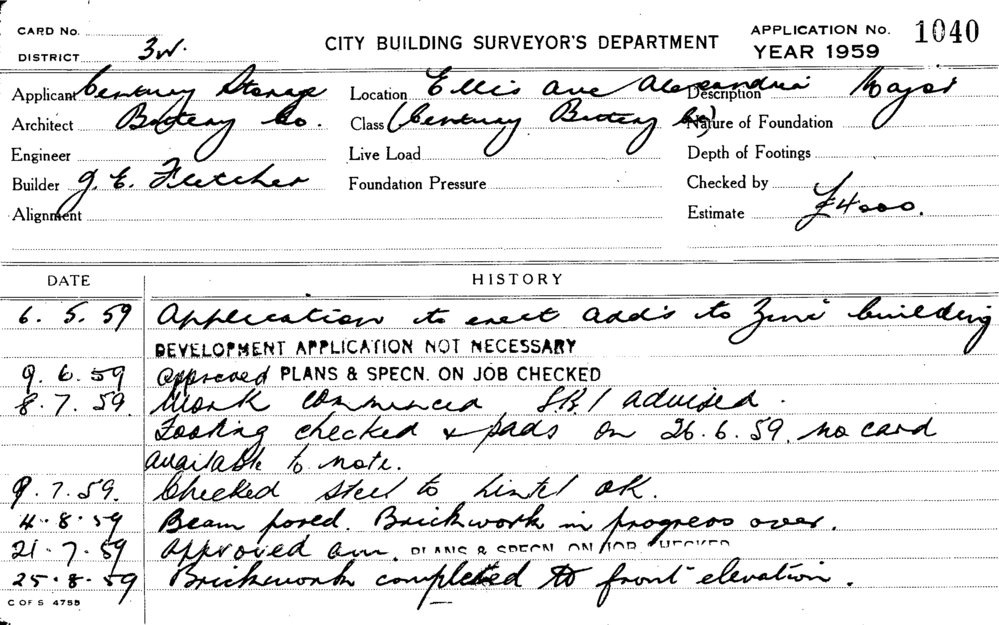 CARD No.
DISTRICT 3W.
CITY BUILDING SURVEYOR'S DEPARTMENT
APPLICATION No. 1040
YEAR 1959
Applicant Century Storage
Location Ellis Ave Alexandria
Description Major
Architect Battery Co.
Class (Century Battery Co)
Nature of Foundation
Engineer
Live Load
Depth of Footings
Builder J. E. Fletcher
Foundation Pressure
Checked by
Alignment
Estimate £4000.
DATE HISTORY
6. 5. 59 Application to erect add's to building
DEVELOPMENT APPLICATION NOT NECESSARY
9. 6. 59 approved PLANS & SPECN. ON JOB CHECKED
8. 7. 59. Work commenced advised.
Footing checked & pads on 26. 6. 59. no card
available to note.
9. 7. 59. Checked steel to Lintel OK.
4. 8. 59 Beam pored. Brickwork in progress over.
21. 7. 59 approved am. PLANS & SPECN. ON JOB CHECKED
25. 8. 59 Brickwork completed to front elevation.
C OF S 4755